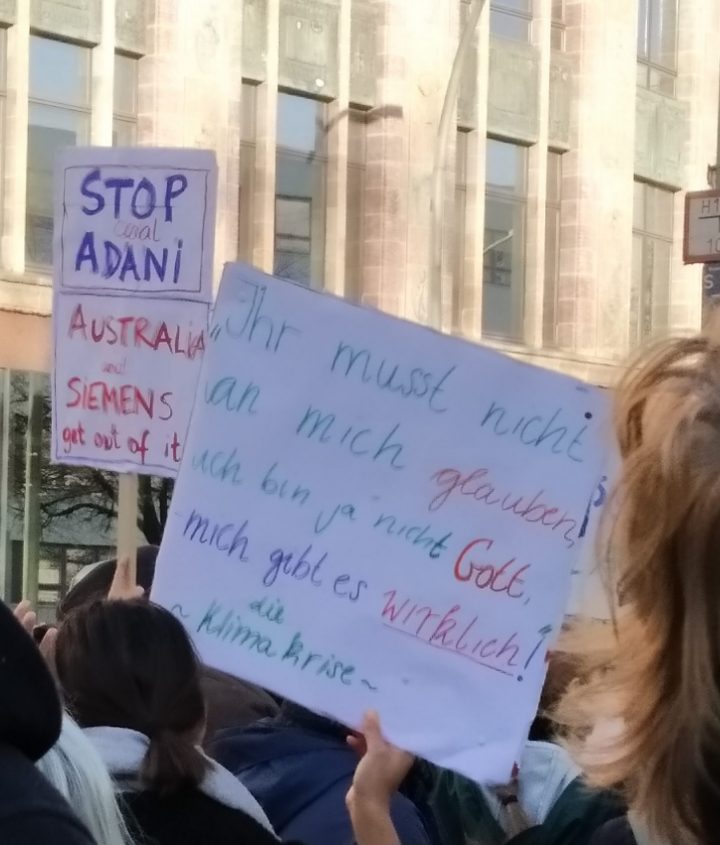 STOP
coal
ADANi
AUSTRALIA
and
SiEMENS
get out of it
„Ihr musst nicht
an mich glauben,
ich bin ja nicht Gott,
mich gibt es wirklich!“
die
~ Klimakrise ~
H1